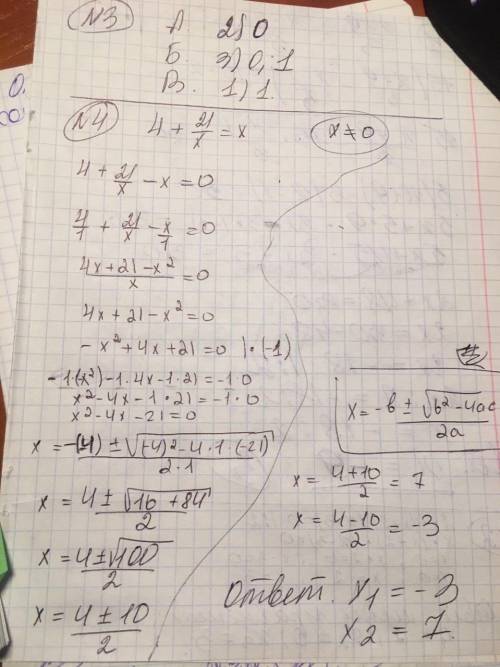 №3 А 2) 0
Б. 3) 0; 1
В. 1) 1.
№4 4 + 21/x = x x ≠ 0
4 + 21/x − x = 0
4/1 + 21/x − x/1 = 0
(4x+21−x²)/x = 0
4x + 21 − x² = 0
− x² + 4x + 21 = 0 | · (−1)
−1·(x²) −1·4x −1·21 = −1·0
x² − 4x − 1·21 = −1·0
x² − 4x − 21 = 0
x = (−(4) ± √((−4)² − 4·1·(−21)))/(2·1)
x = (4 ± √(16 + 84))/2
x = (4 ± √100)/2
x = (4 ± 10)/2
x = (−b ± √(b² − 4ac))/2a
x = (4+10)/2 = 7
x = (4−10)/2 = −3
Ответ. x₁ = −3
x₂ = 7.